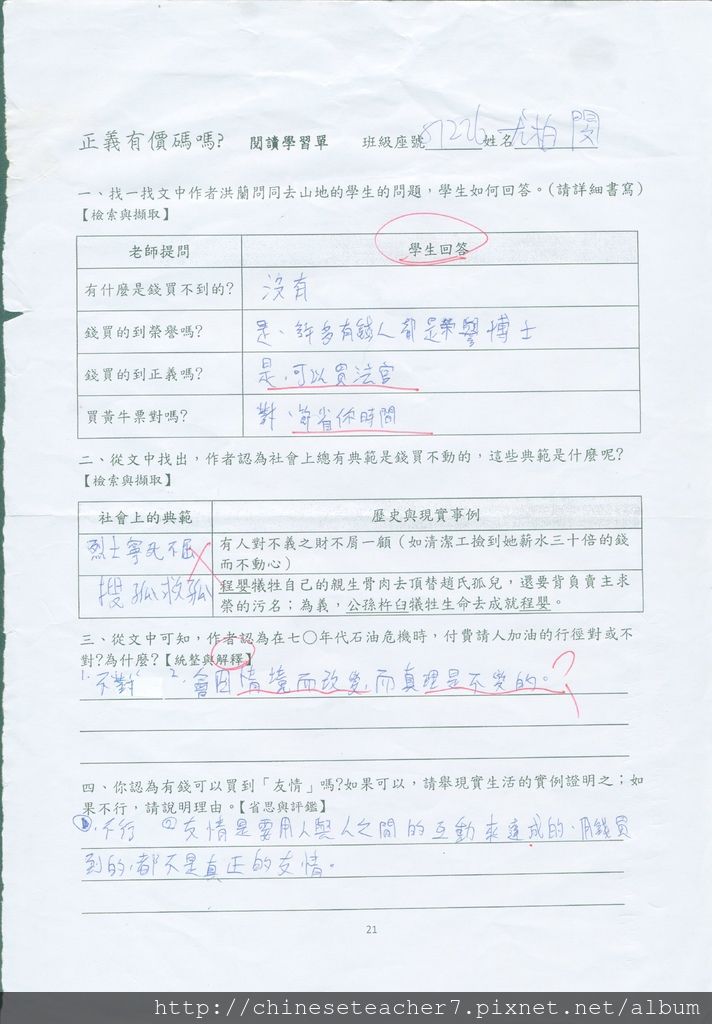 正義有價碼嗎? 閱讀學習單 班級座號 81226 姓名 尤柏閔
一、找一找文中作者洪蘭問同去山地的學生的問題，學生如何回答。(請詳細書寫)
【檢索與擷取】
老師提問 學生回答
有什麼是錢買不到的? 沒有
錢買的到榮譽嗎? 是、許多有錢人都是榮譽博士
錢買的到正義嗎? 是，可以買法官
買黃牛票對嗎? 對、節省你時間
二、從文中找出，作者認為社會上總有典範是錢買不動的，這些典範是什麼呢?
【檢索與擷取】
社會上的典範 歷史與現實事例
烈士寧死不屈 有人對不義之財不屑一顧（如清潔工撿到她薪水三十倍的錢
而不動心）
搜孤救孤 程嬰犧牲自己的親生骨肉去頂替趙氏孤兒，還要背負賣主求
榮的污名；為義，公孫杵臼犧牲生命去成就程嬰。
三、從文中可知，作者認為在七〇年代石油危機時，付費請人加油的行徑對或不
對?為什麼?【統整與解釋】
1. 不對 2. 會因情境而改變，而真理是不變的。?
四、你認為有錢可以買到「友情」嗎?如果可以，請舉現實生活的實例證明之；如
果不行，請說明理由。【省思與評鑑】
①.不行 ②友情是要用人與人之間的互動來達成的，用錢買
到的，都不是真正的友情。
21
http://chineseteacher7.pixnet.net/album